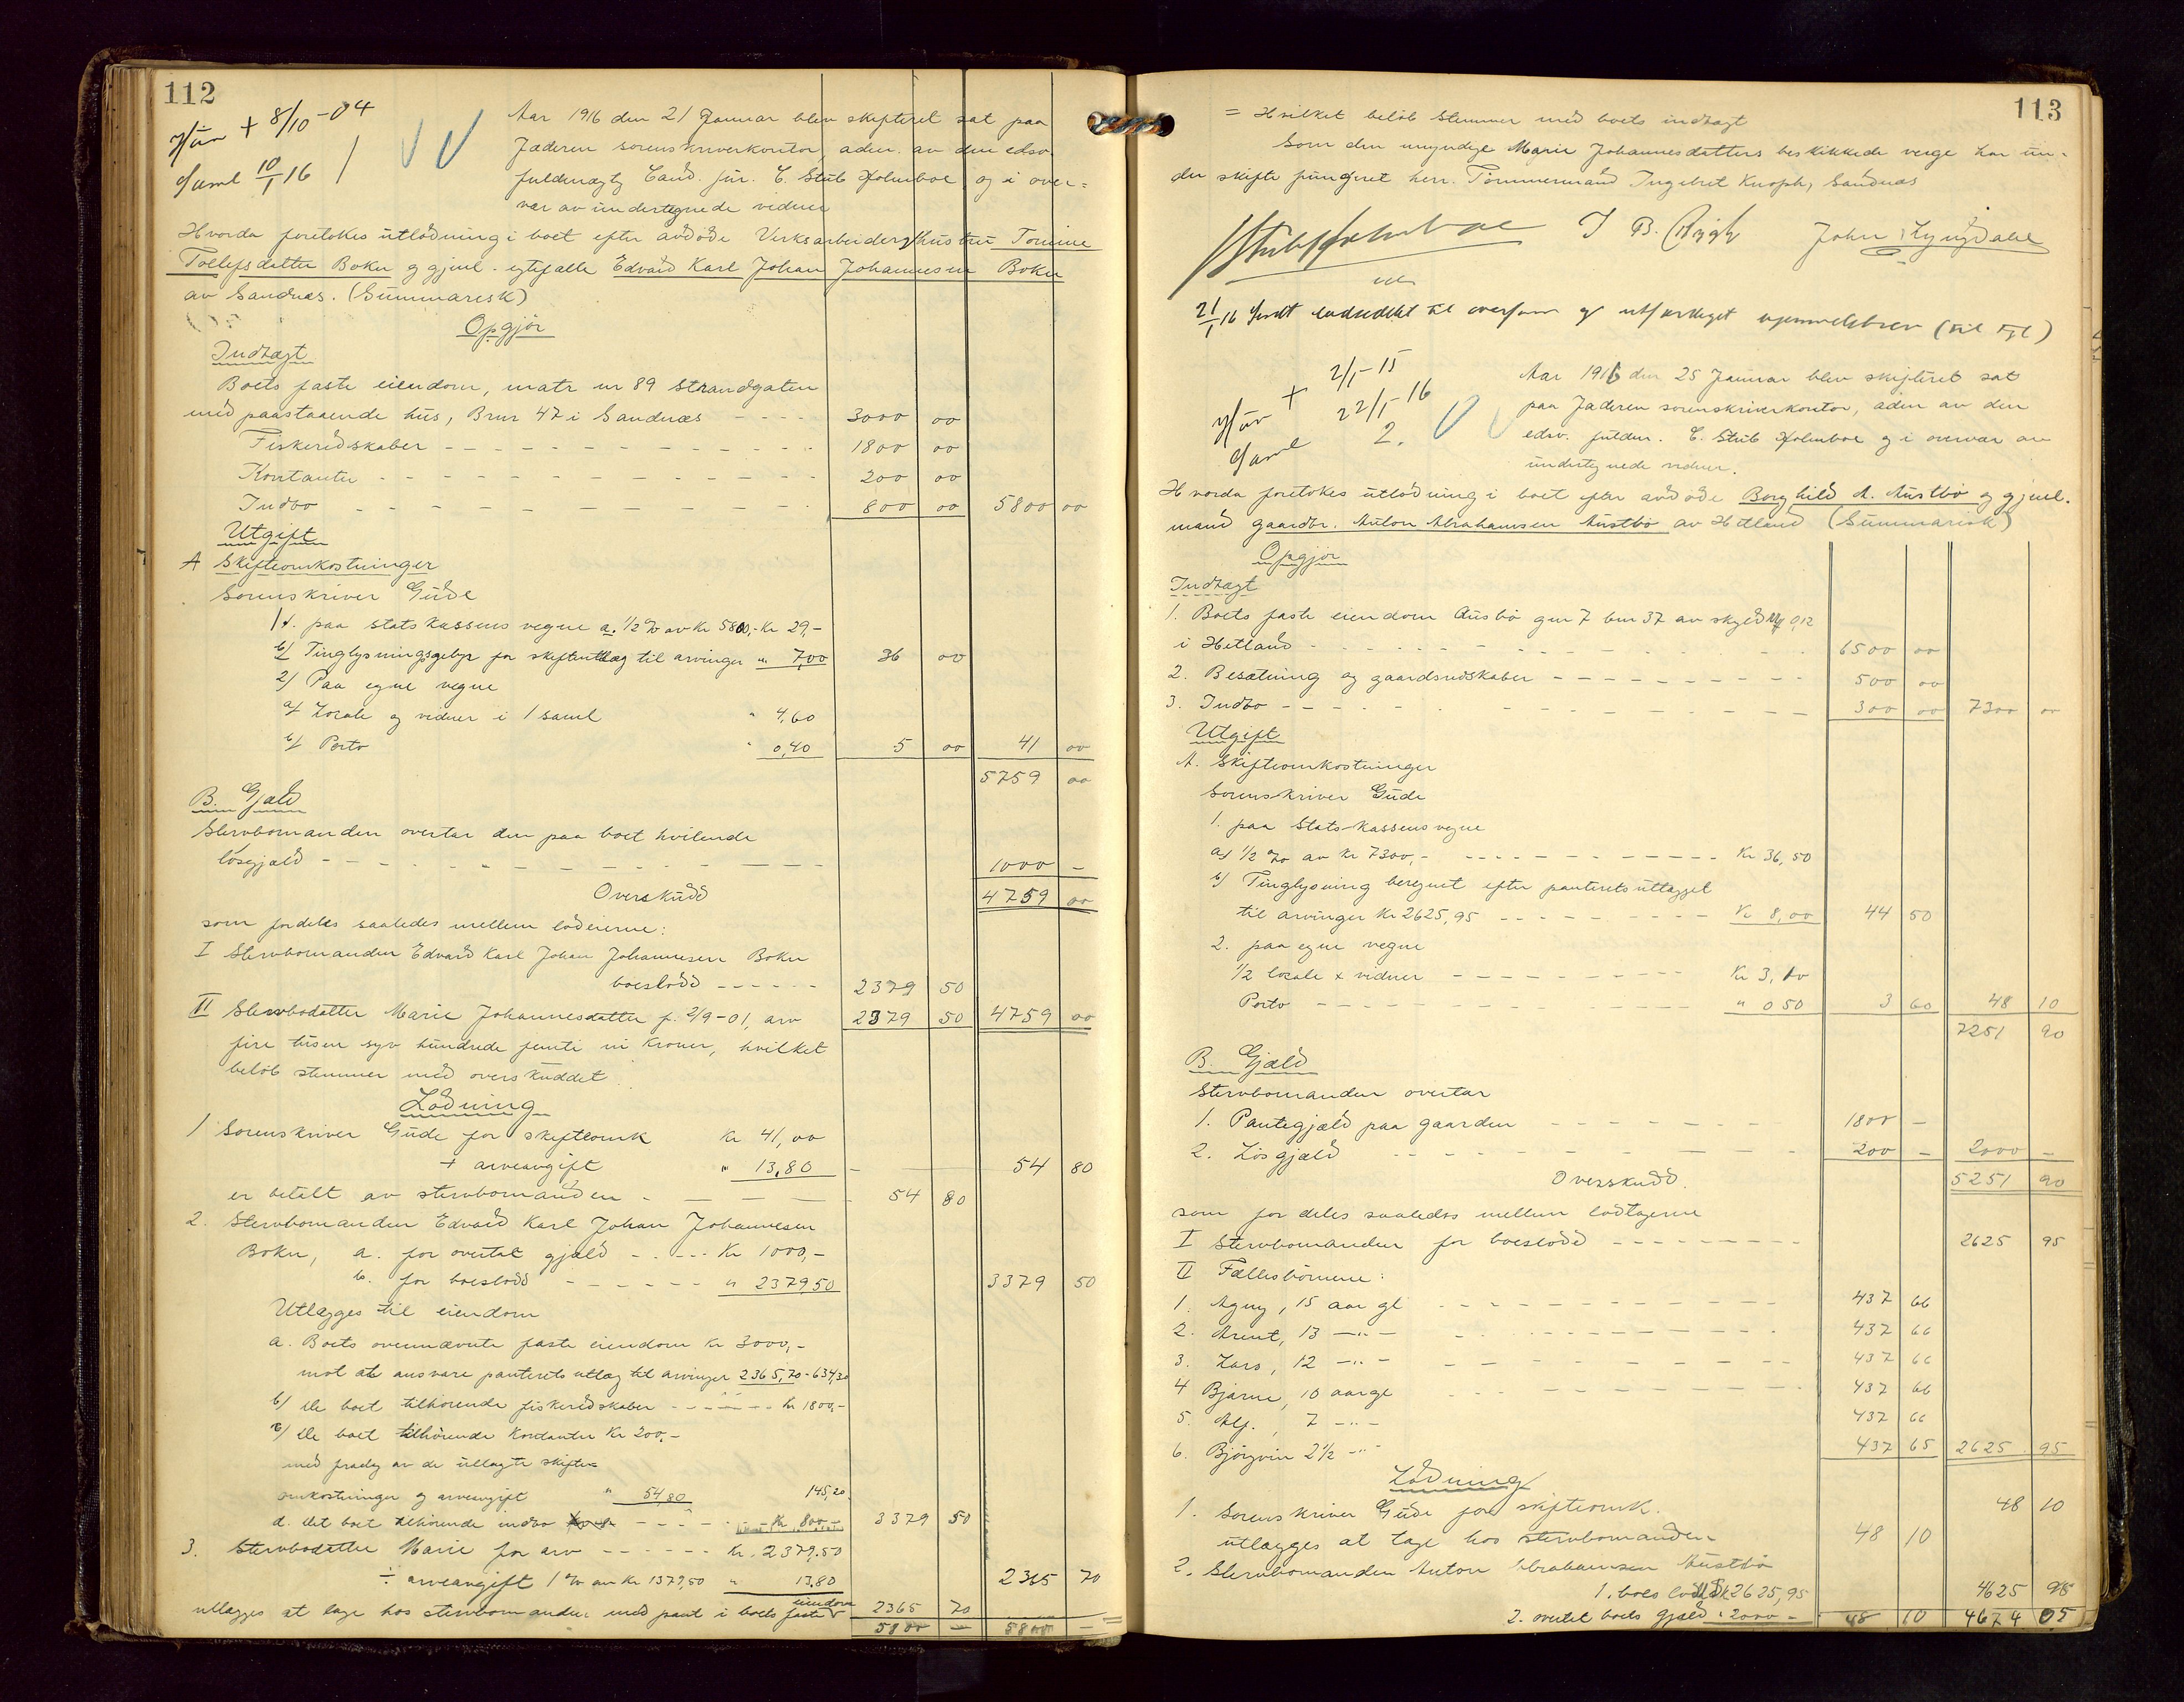 112
+ 8/10 - 04
Saml 10/1 16
Aar 1916 den 21 Januar blev skifteret sat paa
Jæderen sorenskriverkontor, adm. av den edsv.
fuldmægtg Cand. jur. C. Stub Holmboe og i over-
vær av undertegnede vidner
Hvorda foretokes utlodning i boet efter avdøde Verksarbeiderhustru Tomine
Tollefsdatter Bokn og gjenl. egtefælle Edvard Karl Johan Johannesen Bokn
av Sandnæs. (Summarisk)
Opgjör
Indtægt
Boets faste eiendom, matr nr 89 Strandgaten
med paastaaende hus, Brnr 47 i Sandnæs - - - 3000 00
Fiskeredskaber - - - 1800 00
Kontanter - - - 200 00
Indbo - - - 800 00 5800 00
Utgift
A Skifteomkostninger
Sorenskriver Gude
1/. paa statskassens vegne a. 1/2 % av Kr 5800,- Kr 29,-
b/ Tinglysningsgebyr for skifteutlæg til arvinger " 7,00 36 00
2/ Paa egne vegne
a/ Locale og vidner i 1 saml " 4,60
b/ Porto " 0,40 5 00 41 00
5759 00
B. Gjæld
Stervbomanden overtar den paa boet hvilende
løsgjæld - - - 1000 -
Overskudd 4759 00
som fordeles saaledes mellem lodeierne:
I Stervbomanden Edvard Karl Johan Johannesen Bokn
boeslodd - - - 2379 50
II Stervbodatter Marie Johannesdatter f. 2/9-01, arv 2379 50 4759 00
fire tusen syv hundrede femti ni Kroner, hvilket
beløb stemmer med overskuddet.
Lodning
1 Sorenskriver Gude for skifteomk Kr 41,00
+ arveavgift " 13.80 - 54 80
er betalt av stervbomanden - - - 54 80
2. Stervbomanden Edvard Karl Johan Johannesen
Bokn, a. for overtat gjæld - - - Kr 1000,-
b. for boeslodd - - - " 2379 50 3379 50
Utlægges til eiendom
a. Boets ovennævnte faste eiendom Kr 3000,-
mot at ansvare panterets utlæg til arvinger 2365,70 - 634,30
b/ de boet tilhörende fiskeredskaber - - - Kr 1800,-
c/ de boet tilhörende Kontanter Kr 200,-
med fradrg av de utlagte skifte-
omkostninger og arveavgift " 54,80 145,20
d. det boet tilhörende indbo - - - Kr 800 - 3379 50
3. Stervbodatter Marie for arv - - - Kr. 2379.50
÷ arveavgift 1 % av Kr 1379,50 " 13.80 2365 70
utlægges at tage hos stervbomanden med pant i boets faste eiendom 2365 70
5800 - 5800 -
113
= Hvilket beløb stemmer med boets indtægt
Som den umyndige Marie Johannesdatters beskikkede verge har un-
der skifte fungeret herr. Tømmermand Ingebret Knoph, Sandnæs
Stub Holmboe J B. John Lyngdahl
21/1 16 Sendt til overform og utfærdiget hjemmelsbrev (til tgl)
+ 2/1 - 15
22/1 - 16
Saml 2.
Aar 1916 den 25 Januar blev skifteret sat
paa Jæderen sorenskriverkontor, adm av den
edsv. fuldm. C. Stub Holmboe og i overvær av
undertegnede vidner.
Hvorda foretokes utlodning i boet efter avdøde Borghild A. Austbö og gjenl.
mand gaardbr. Anton Abrahamsen Austbö av Hetland (Summarisk)
Opgjör
Indtægt
1. Boets faste eiendom Ausbö gnr 7 bnr 37 av skyld Mk 0,12
i Hetland - - - 6500 00
2. Besætning og gaardsredskaber - - - 500 00
3. Indbo - - - 300 00 7300 00
Utgift
A. Skifteomkostninger
Sorenskriver Gude
1. paa Stats-Kassens vegne
a/ 1/2 % av Kr 7300,- - - - Kr 36,50
b/ Tinglysning beregnet efter panteretsutlægget
til arvinger Kr 2625,95 - - - Kr 8,00 44 50
2. paa egne vegne
1/2 locale & vidner - - - Kr 3,10
Porto - - - " 0 50 3 60 48 10
7251 90
B. Gjæld
Stervbomanden overtar
1. Pantegjæld paa gaarden - - - 1800 -
2. Løsgjæld - - - 200 - 2000 -
Overskudd. 5251 90
som fordeles saaledes mellem lodtagerne
I Stervbomanden for boeslodd - - - 2625 95
II Fællesbørnene:
1. Agny, 15 aar gl - - - 437 66
2. Arent, 13 -"- - - - 437 66
3. Lars, 12 -"- - - - 437 66
4 Bjarne, 10 aargl - - - 437 66
5. Alf, 7 -"- 437 66
6. Bjørgvin 2 1/2 -"- 437 65 2625 95
Lodning
1. Sorenskriver Gude for skifteomk. 48 10
utlægges at tage hos stervbomanden 48 10
2. Stervbomanden Anton Abrahamsen Austbö
1. boeslodd Kr 2625,95 4625 95
2. overtat boets gjæld " 2000 - 48 10 4674 05